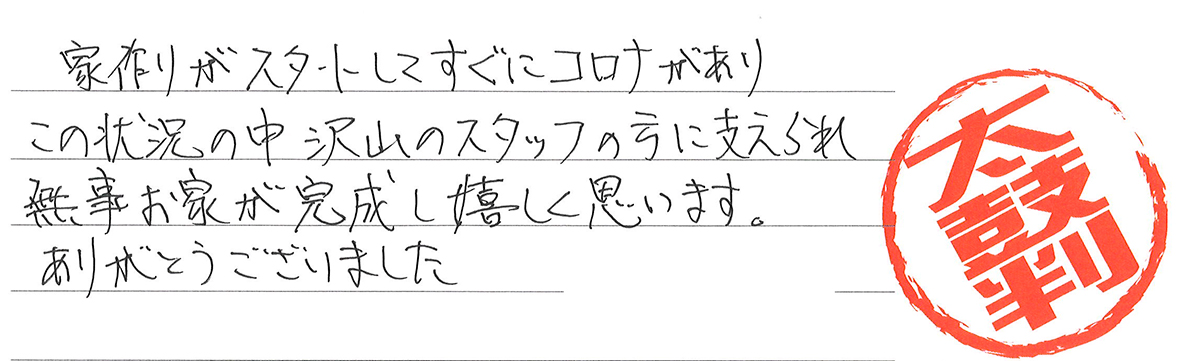 家作りがスタートしてすぐにコロナがあり
この状況の中沢山のスタッフの方に支えられ
無事お家が完成し嬉しく思います。
ありがとうございました
太鼓判